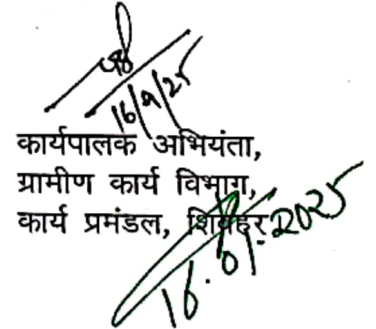 16/9/25
कार्यपालक अभियंता,
ग्रामीण कार्य विभाग,
कार्य प्रमंडल, शिवहर